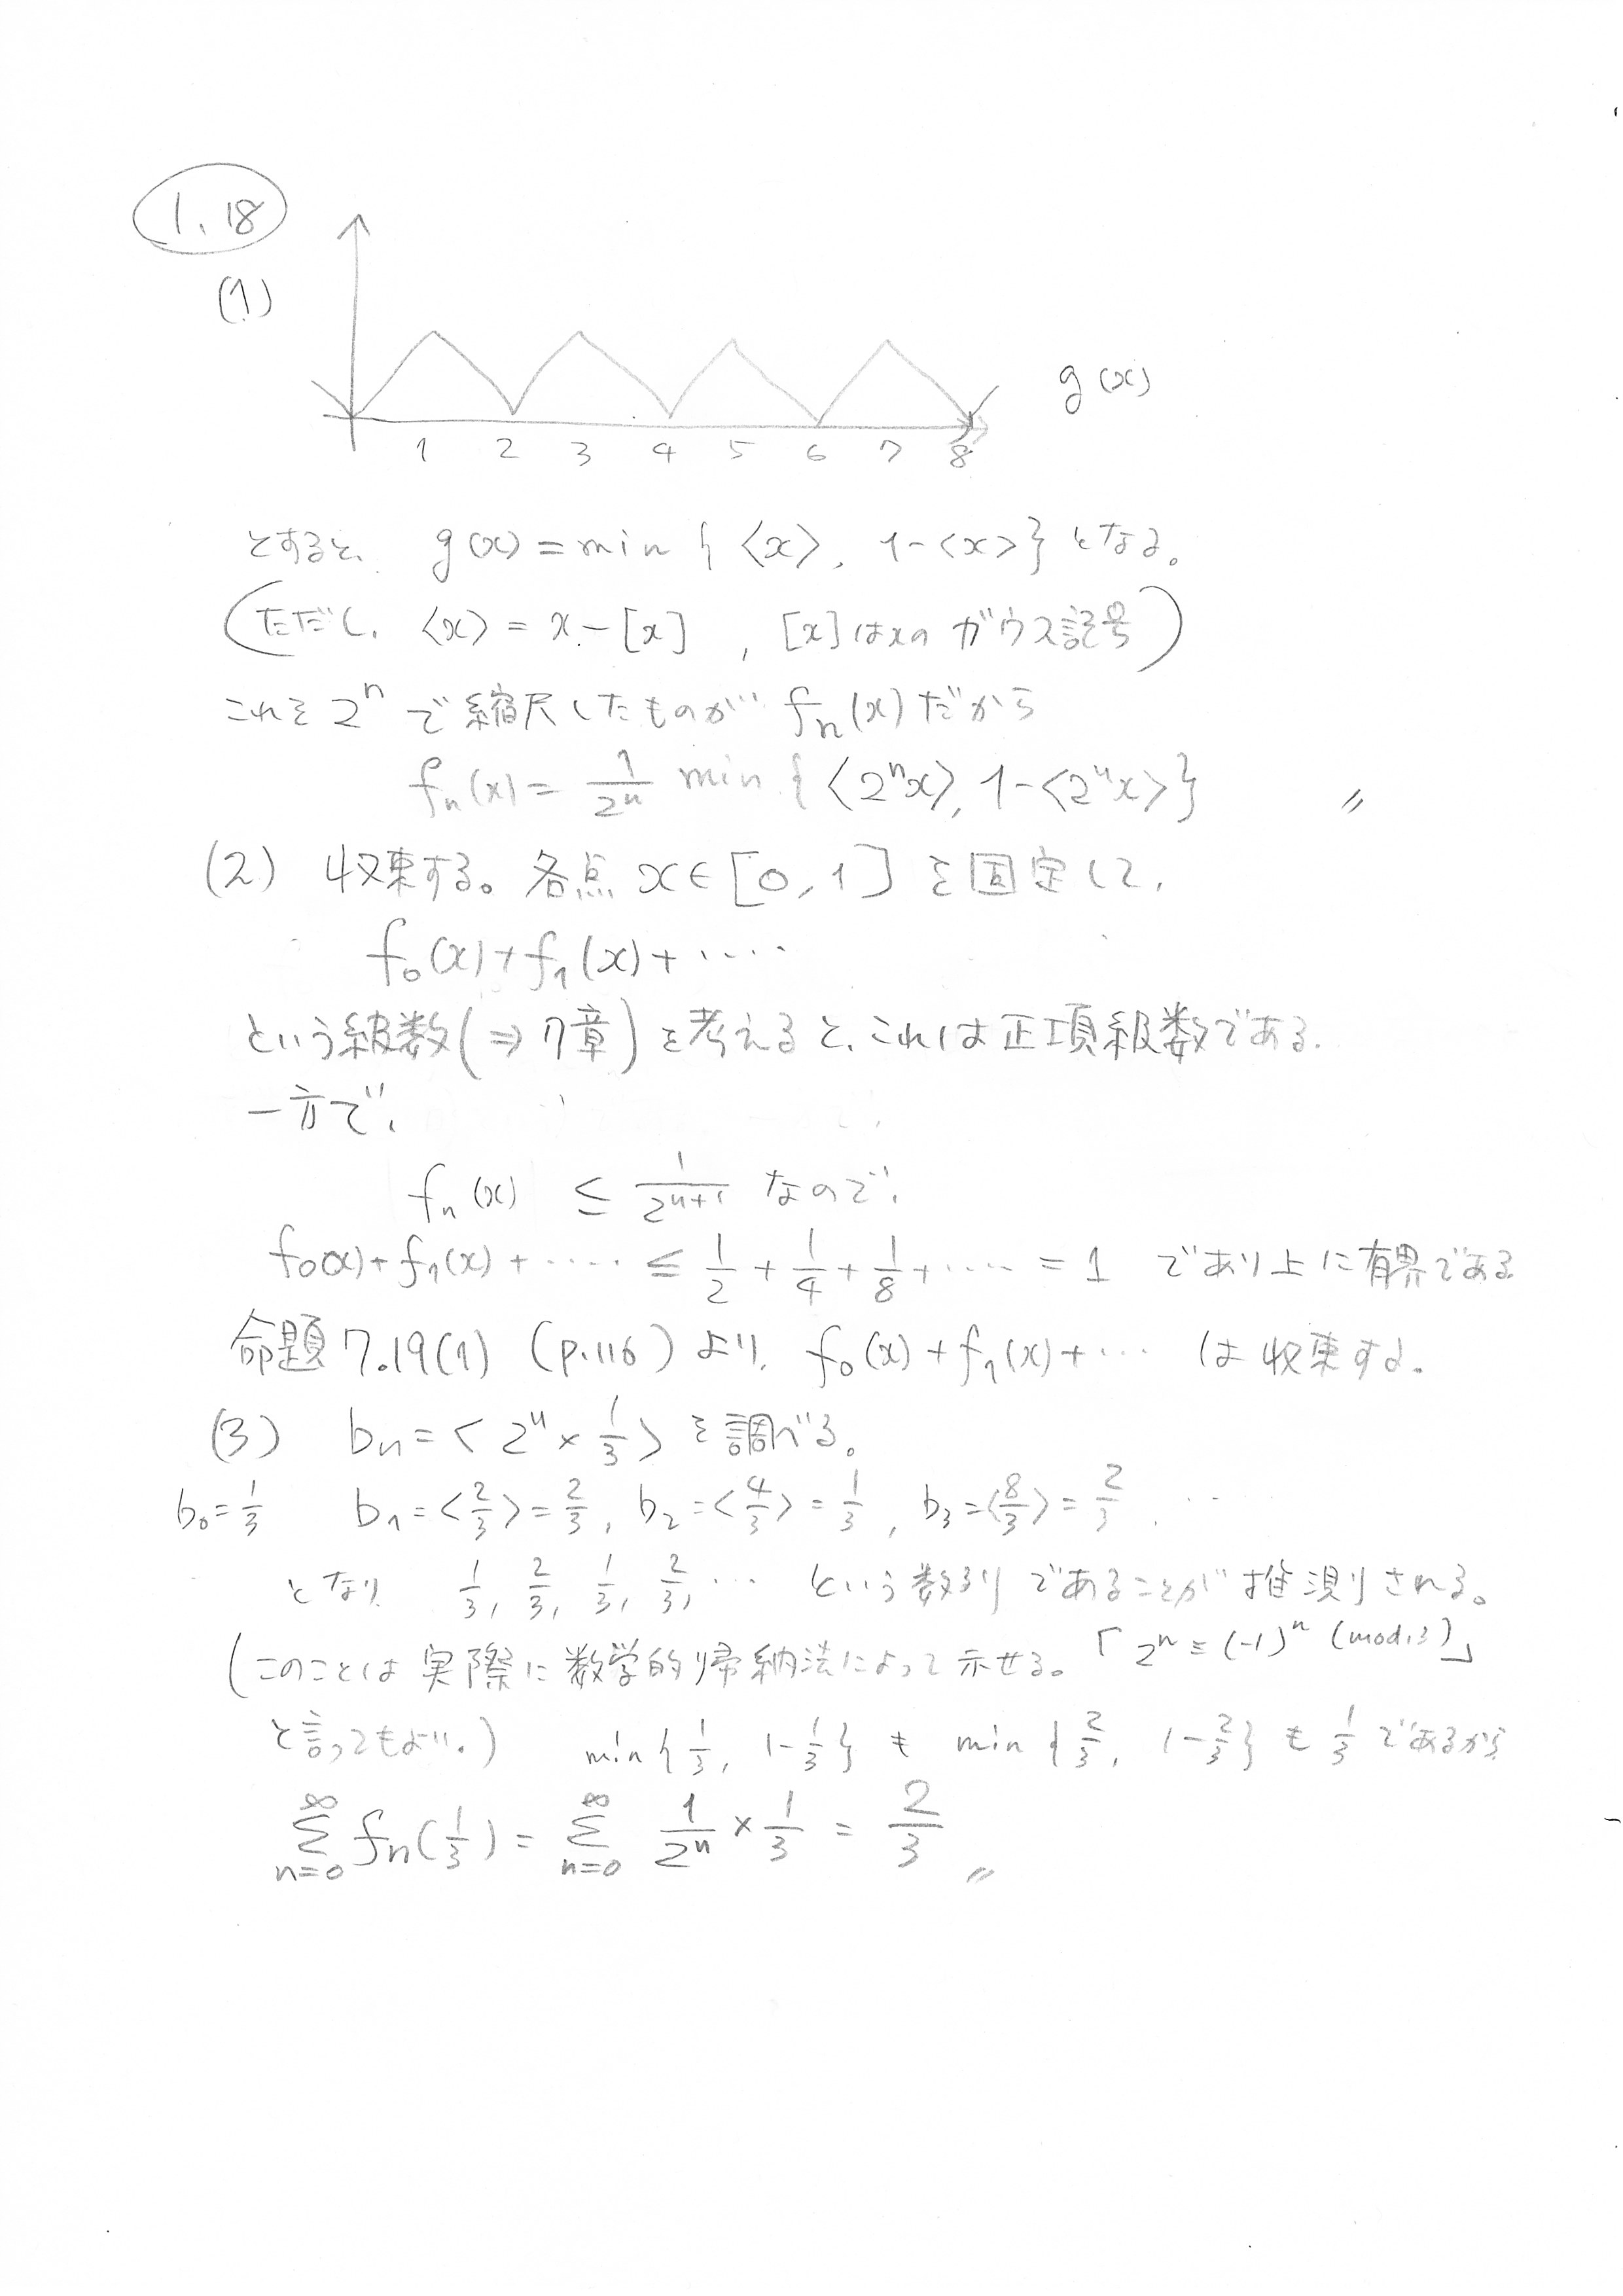 1.18
(1)
g(x)
1 2 3 4 5 6 7 8
とすると、 g(x) = min { <x>, 1-<x> } となる。
(ただし、 <x> = x - [x] , [x]はxの ガウス記号)
これを 2^n で縮尺したものが f_n(x) だから
f_n(x) = 1/2^n min { <2^n x>, 1-<2^n x> } 〃
(2) 収束する。各点 x∈[0,1] を固定して、
f_0(x)+f_1(x)+‥‥
という級数(⇒7章)を考えると、これは正項級数である.
一方で、
f_n(x) ≤ 1/2^{n+1} なので、
f_0(x)+f_1(x)+‥‥ ≦ 1/2 + 1/4 + 1/8 +‥‥ = 1 であり上に有界である
命題7.19(1) (p.116) より、 f_0(x)+f_1(x)+… は収束する。
(3) b_n = < 2^n × 1/3 > を調べる。
b_0=1/3 b_1=<2/3>=2/3, b_2=<4/3>=1/3, b_3=<8/3>=2/3, ‥
となり 1/3, 2/3, 1/3, 2/3, … という数列であることが推測される。
(このことは実際に数学的帰納法によって示せる。「2^n ≡ (-1)^n (mod.3)」
と言ってもよい。) min{1/3, 1-1/3} も min{2/3, 1-2/3} も 1/3 であるから
∑_{n=0}^{∞} f_n(1/3) = ∑_{n=0}^{∞} 1/2^n × 1/3 = 2/3 〃